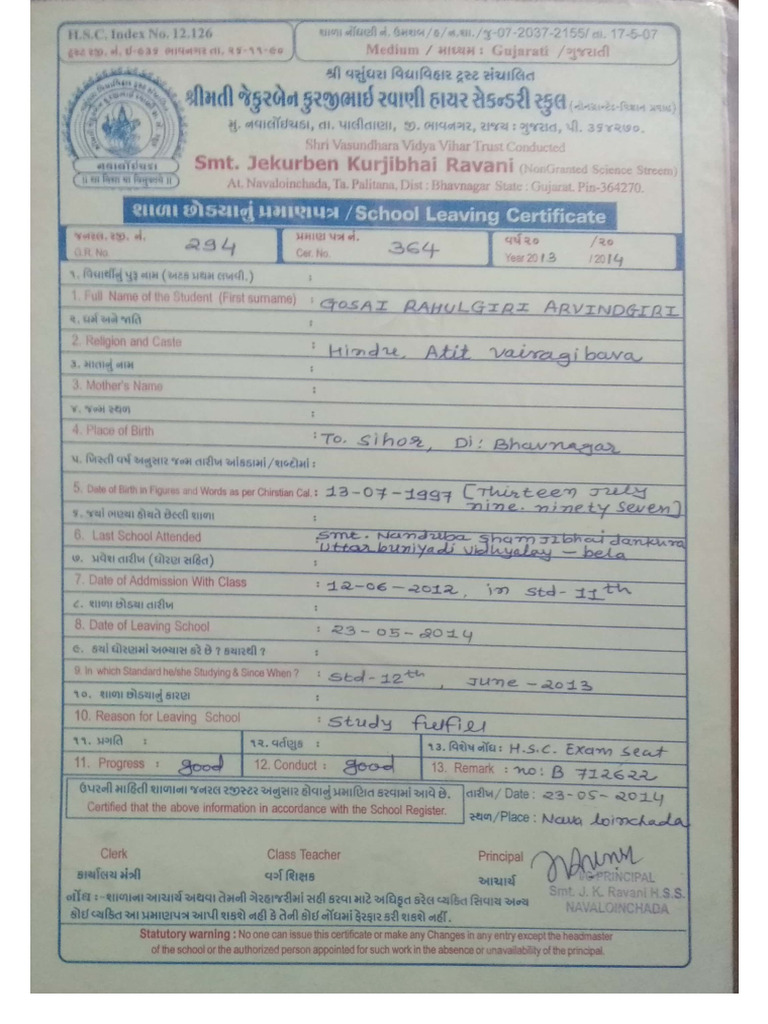 H.S.C. Index No. 12.126
શાળા નોંધણી નં. ઉમશબ/૬/ન.શા./જુ-07-2037-2155/તા. 17-5-07
ટ્રસ્ટ રજી. નં. ઈ-૬૩૬ ભાવનગર તા. ૨૬-૧૧-૦૦
Medium / માધ્યમ : Gujarati / ગુજરાતી
શ્રી વસુંધરા વિદ્યાવિહાર ટ્રસ્ટ સંચાલિત
શ્રીમતી જેકુરબેન કુરજીભાઈ રવાણી હાયર સેકન્ડરી સ્કુલ (નોનગ્રાન્ટેડ-વિજ્ઞાન પ્રવાહ)
મુ. નવાલોંઈચડા, તા. પાલીતાણા, જી. ભાવનગર, રાજ્ય : ગુજરાત, પી. ૩૬૪૨૭૦.
નવાલોંઈચડા
॥ સા વિદ્યા યા વિમુક્તયે ॥
Shri Vasundhara Vidya Vihar Trust Conducted
Smt. Jekurben Kurjibhai Ravani (NonGranted Science Streem)
At. Navaloinchada, Ta. Palitana, Dist : Bhavnagar State : Gujarat. Pin-364270.
શાળા છોડયાનું પ્રમાણપત્ર / School Leaving Certificate
જનરલ. રજી. નં. પ્રમાણ પત્ર નં. વર્ષ ૨૦ /૨૦
G.R. No. 294 Cer. No. 364 Year 2013 / 2014
૧. વિદ્યાર્થીનું પુરૂ નામ (અટક પ્રથમ લખવી.) :
1. Full Name of the Student (First surname) : GOSAI RAHULGIRI ARVINDGIRI
૨. ધર્મ અને જાતિ :
2. Religion and Caste : Hindu, Atit Vairagibava
૩. માતાનું નામ :
3. Mother's Name :
૪. જન્મ સ્થળ :
4. Place of Birth : To. Sihor, Di: Bhavnagar
૫. ખ્રિસ્તી વર્ષ અનુસાર જન્મ તારીખ આંકડામાં/શબ્દોમાં :
5. Date of Birth in Figures and Words as per Chirstian Cal. : 13-07-1997 [Thirteen July
nine. ninety seven]
૬. જયાં ભણ્યા હોયતે છેલ્લી શાળા :
6. Last School Attended : Smt. Nanduba Shamjibhai dankura
Uttarbuniyadi vidhyalay - bela
૭. પ્રવેશ તારીખ (ધોરણ સહિત) :
7. Date of Addmission With Class : 12-06-2012, in std-11th
૮. શાળા છોડયા તારીખ :
8. Date of Leaving School : 23-05-2014
૯. કયાં ધોરણમાં અભ્યાસ કરે છે ? કયારથી ? :
9. In which Standard he/she Studying & Since When ? : Std-12th, June-2013
૧૦. શાળા છોડયાનું કારણ :
10. Reason for Leaving School : Study fulfill
૧૧. પ્રગતિ : ૧૨. વર્તણુક : ૧૩. વિશેષ નોંધ : H.S.C. Exam seat
11. Progress : good 12. Conduct : good 13. Remark : no: B 712622
ઉપરની માહિતી શાળાના જનરલ રજીસ્ટર અનુસાર હોવાનું પ્રમાણિત કરવામાં આવે છે.
Certified that the above information in accordance with the School Register.
તારીખ/ Date : 23-05-2014
સ્થળ/Place : Nava loinchada
Clerk Class Teacher Principal
કાર્યાલય મંત્રી વર્ગ શિક્ષક આચાર્ય
I/C PRINCIPAL
Smt. J. K. Ravani H.S.S.
NAVALOINCHADA
નોંધ :- શાળાના આચાર્ય અથવા તેમની ગેરહાજરીમાં સહી કરવા માટે અધિકૃત કરેલ વ્યકિત સિવાય અન્ય
કોઈ વ્યકિત આ પ્રમાણપત્ર આપી શકશે નહી કે તેની કોઈ નોંધમાં ફેરફાર કરી શકશે નહીં.
Statutory warning : No one can issue this certificate or make any Changes in any entry except the headmaster
of the school or the authorized person appointed for such work in the absence or unavailability of the principal.